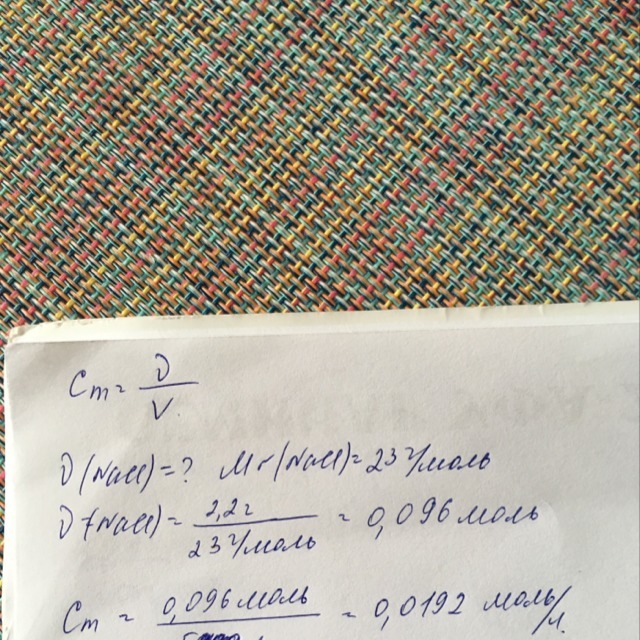 Cm = ν / V
ν(NaCl) = ? Mr(NaCl) = 23 г/моль
ν(NaCl) = 2,2г / 23 г/моль = 0,096 моль
Cm = 0,096 моль / = 0,0192 моль/л.